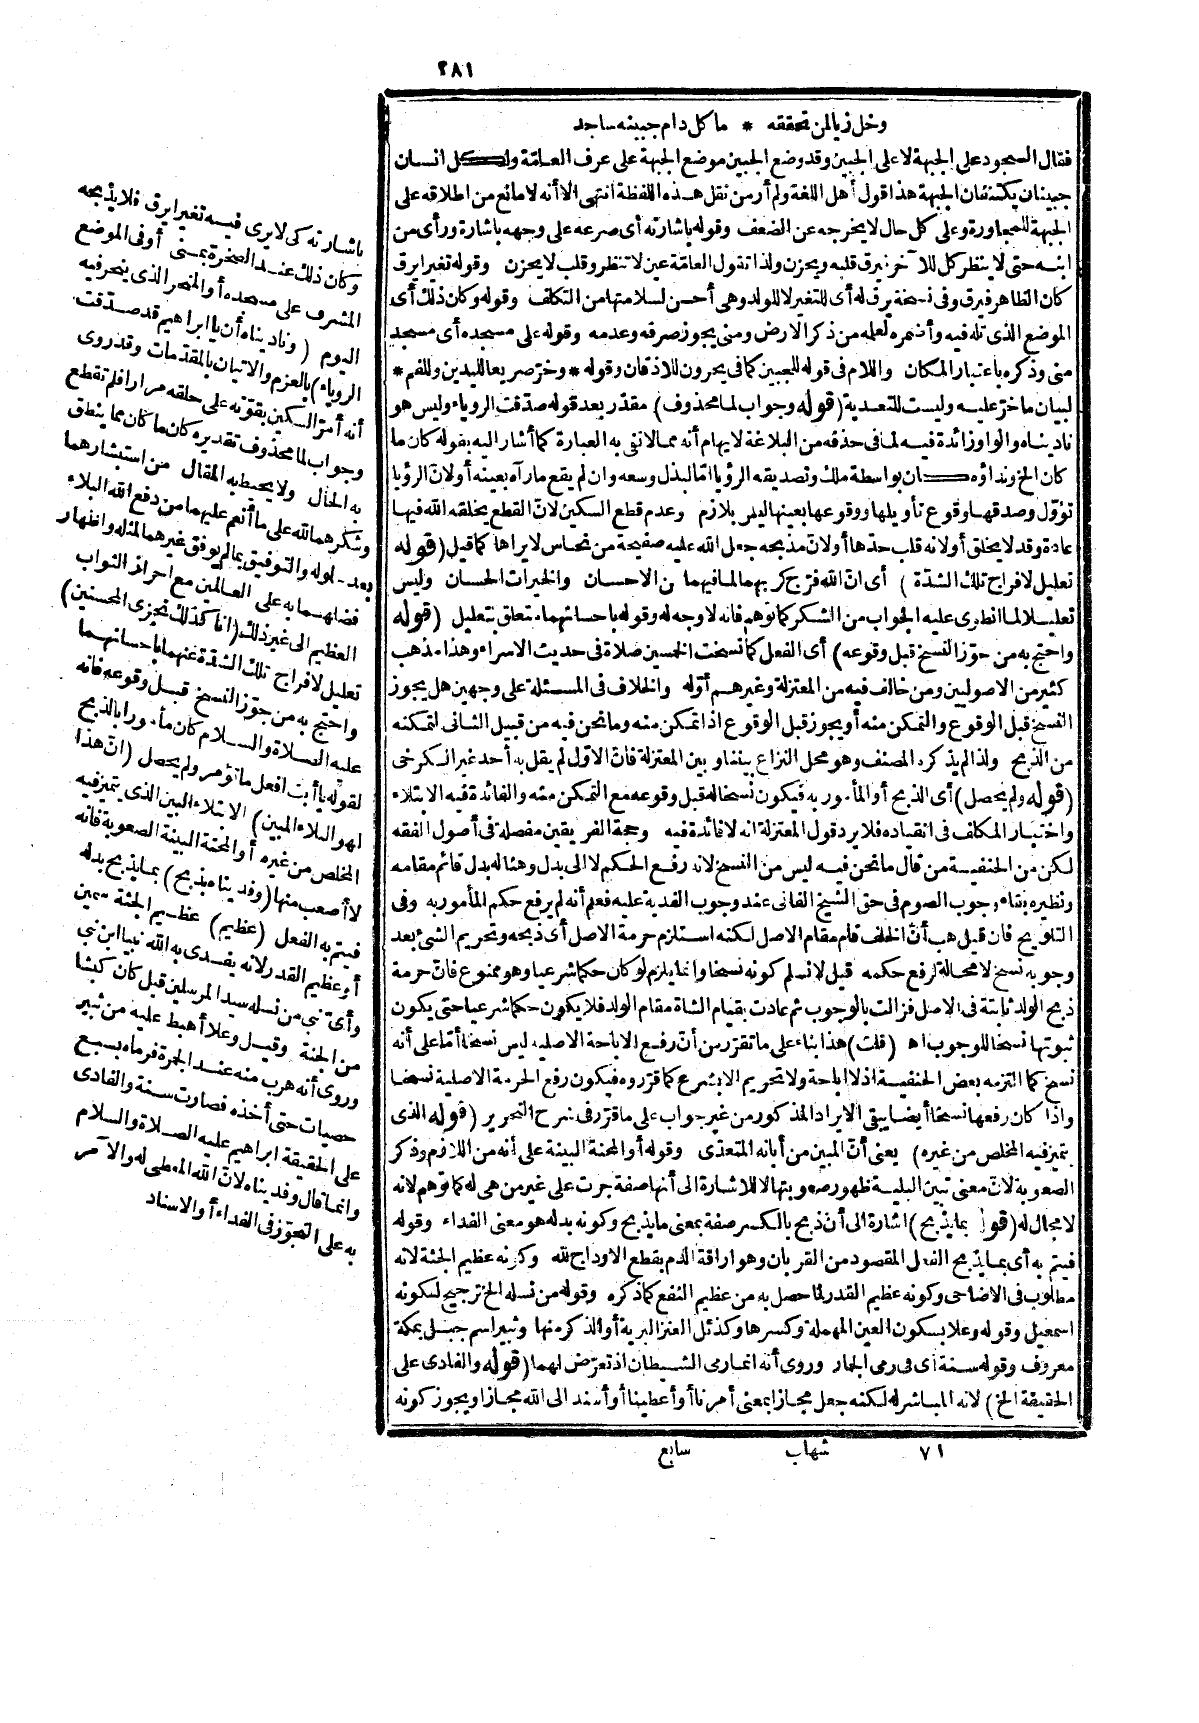 ٢٨١
وخل زيالمن تحققه * ما كل دام جبينه ساجد
فقال السجود على الجبهة لا على الجبين وقد وضع الجبين موضع الجبهة على عرف العامّة ولكل انسان
جبينان يكتنفان الجبهة هذا قول أهل اللغة ولم أر من نقل هذه اللفظة انتهى الا أنه لا مانع من اطلاقه على
الجبهة للمجاورة وعلى كل حال لا يخرجه عن الضعف وقوله باشارته أى صرعه على وجهه باشارة ورأى من
ابنه حتى لا ينظر كل للآخر فيرق قلبه ويحزن ولذا تقول العامّة عين لا تنظر وقلب لا يحزن وقوله تغيرا يرق
كان الظاهر فيرق وفى نسخة يرق له أى للتغير للولد وهى أحسن لسلامتها من التكلف وقوله وكان ذلك أى
الموضع الذى تله فيه وأضمره لعله من ذكر الارض ومنى يجوز صرفه وعدمه وقوله على مسجده أى مسجد
منى وذكره باعتبار المكان واللام فى قوله للجبين كما فى يخرون للاذقان وقوله * وخرّ صريعا لليدين وللفم *
لبيان ما خرّ عليه وليست للتعدية (قوله وجواب لما محذوف) مقدر بعد قوله صدّقت الرؤياء وليس هو
ناديناه والواو زائدة فيه لما فى حذفه من البلاغة لايهام أنه مما لا تفى به العبارة كما أشار اليه بقوله كان ما
كان الخ ونداؤه كان بواسطة ملك وتصديقه الرؤيا امّا لبذل وسعه وان لم يقع ما رآه بعينه أو لانّ الرؤيا
تؤوّل وصدقها وقوع تأويلها ووقوعها بعينها ليس بلازم وعدم قطع السكين لانّ القطع يخلقه الله فيها
عادة وقد لا يخلق أو لانه قلب حدّها أو لانّ مذبحه جعل الله عليه صفيحة من نحاس لا يراها كما قيل (قوله
تعليل لافراج تلك الشدّة) أى انّ الله فرّج كربهما لما فيهما من الاحسان والخيرات الحسان وليس
تعليلا لما انطوى عليه الجواب من الشكر كما توهم فانه لا وجه له وقوله باحسانهما متعلق بتعليل (قوله
واحتج به من جوّز النسخ قبل وقوعه) أى الفعل كما نسخت الخمسين صلاة فى حديث الاسراء وهذا مذهب
كثير من الاصوليين ومن خالف فيه من المعتزلة وغيرهم أوّله والخلاف فى المسئلة على وجهين هل يجوز
النسخ قبل الوقوع والتمكن منه أو يجوز قبل الوقوع اذا تمكن منه وما نحن فيه من قبيل الثانى لتمكنه
من الذبح ولذا لم يذكره المصنف وهو محل النزاع بيننا وبين المعتزلة فانّ الاوّل لم يقل به أحد غير الكرخى
(قوله ولم يحصل) أى الذبح أو المأمور به فيكون نسخا له قبل وقوعه مع التمكن منه والفائدة فيه الابتلاء
واختيار المكلف فى انقياده فلا يرد قول المعتزلة انه لا فائدة فيه وحجة الفريقين مفصلة فى أصول الفقه
لكن من الحنفية من قال ما نحن فيه ليس من النسخ لانه رفع الحكم لا الى بدل وهنا له بدل قائم مقامه
ونظيره بقاء وجوب الصوم فى حق الشيخ الفانى عند وجوب الفدية عليه فعلم أنه لم يرفع حكم المأمور به وفى
التلويح فان قيل هب أنّ الخلف قام مقام الاصل لكنه استلزم حرمة الاصل أى ذبحه وتحريم الشئ بعد
وجوبه نسخ لا محالة لرفع حكمه قيل لا نسلم كونه نسخا وانما يلزم لو كان حكما شرعيا وهو ممنوع فانّ حرمة
ذبح الولد ثابتة فى الاصل فزالت بالوجوب ثم عادت بقيام الشاة مقام الولد فلا يكون حكما شرعيا حتى يكون
ثبوتها نسخا للوجوب اه (قلت) هذا بناء على ما تقرّر من أنّ رفع الاباحة الاصلية ليس نسخا أمّا على أنه
نسخ كما التزمه بعض الحنفية اذ لا اباحة ولا تحريم الا بشرع كما قرّروه فيكون رفع الحرمة الاصلية نسخا
واذا كان رفعها نسخا أيضا يبقى الايراد المذكور من غير جواب على ما قرّر فى شرح التحرير (قوله الذى
يتميز فيه المخلص من غيره) يعنى أنّ المبين من أبانه المتعدّى وقوله أو المحنة البينة على أنه من اللازم وذكر
الصعوبة لانّ معنى تبين البلية ظهور صعوبتها لا للاشارة الى أنها صفة جرت على غير من هى له كما توهم لانه
لا مجال له (قوله بما يذبح) اشارة الى أن ذبح بالكسر صفة بمعنى ما يذبح وكونه بدله هو معنى الفداء وقوله
فيتم به أى بما يذبح الفعل المقصود من القربان وهو اراقة الدّم بقطع الاوداج لله وكونه عظيم الجثة لانه
مطلوب فى الاضاحى وكونه عظيم القدر لما حصل به من عظيم النفع كما ذكره وقوله من نسله الخ ترجيح لكونه
اسمعيل وقوله وعلا بسكون العين المهملة وكسرها وكذئل العنز البرية أو الذكر منها وثبير اسم جبل بمكة
معروف وقوله سنة أى فى رمى الجمار وروى أنه انما رمى الشيطان اذ تعرّض لهما (قوله والفادى على
الحقيقة الخ) لانه المباشر له لكنه جعل مجازا بمعنى أمرنا أو أعطينا أو أسند الى الله مجازا ويجوز كونه
٧١ شهاب سابع
باشارته كى لا يرى فيه تغيرا يرق فلا يذبحه
وكان ذلك عند الصخرة بمنى أو فى الموضع
المشرف على مسجده أو المنحر الذى ينحر فيه
اليوم (وناديناه أن يا ابراهيم قد صدّقت
الرؤياء) بالعزم والاتيان بالمقدّمات وقد روى
أنه أمرّ السكين بقوّته على حلقه مرارا فلم تقطع
وجواب لما محذوف تقديره كان ما كان مما ينطق
به الحال ولا يحيط به المقال من استبشارهما
وشكرهما لله على ما أنعم عليهما من دفع البلاء
بعد حلوله والتوفيق بما لم يوفق غيرهما لمثله واظهار
فضلهما به على العالمين مع احراز الثواب
العظيم الى غير ذلك (انا كذلك نجزى المحسنين)
تعليل لافراج تلك الشدّة عنهما باحسانهما
واحتج به من جوّز النسخ قبل وقوعه فانه
عليه الصلاة والسلام كان مأمورا بالذبح
لقوله يا أبت افعل ما تؤمر ولم يحصل (انّ هذا
لهو البلاء المبين) الابتلاء البين الذى يتميز فيه
المخلص من غيره أو المحنة البينة الصعوبة فانه
لا أصعب منها (وفديناه بذبح) بما يذبح بدله
فيتم به الفعل (عظيم) عظيم الجثة سمين
أو عظيم القدر لانه يفدى به الله نبيا ابن نبى
وأىّ نبى من نسله سيد المرسلين قيل كان كبشا
من الجنة وقيل وعلا أهبط عليه من ثبير
وروى أنه هرب منه عند الجمرة فرماه بسبع
حصيات حتى أخذه فصارت سنة والفادى
على الحقيقة ابراهيم عليه الصلاة والسلام
وانما قال وفديناه لانّ الله المعطى له والآمر
به على التجوّز فى الفداء أو الاسناد